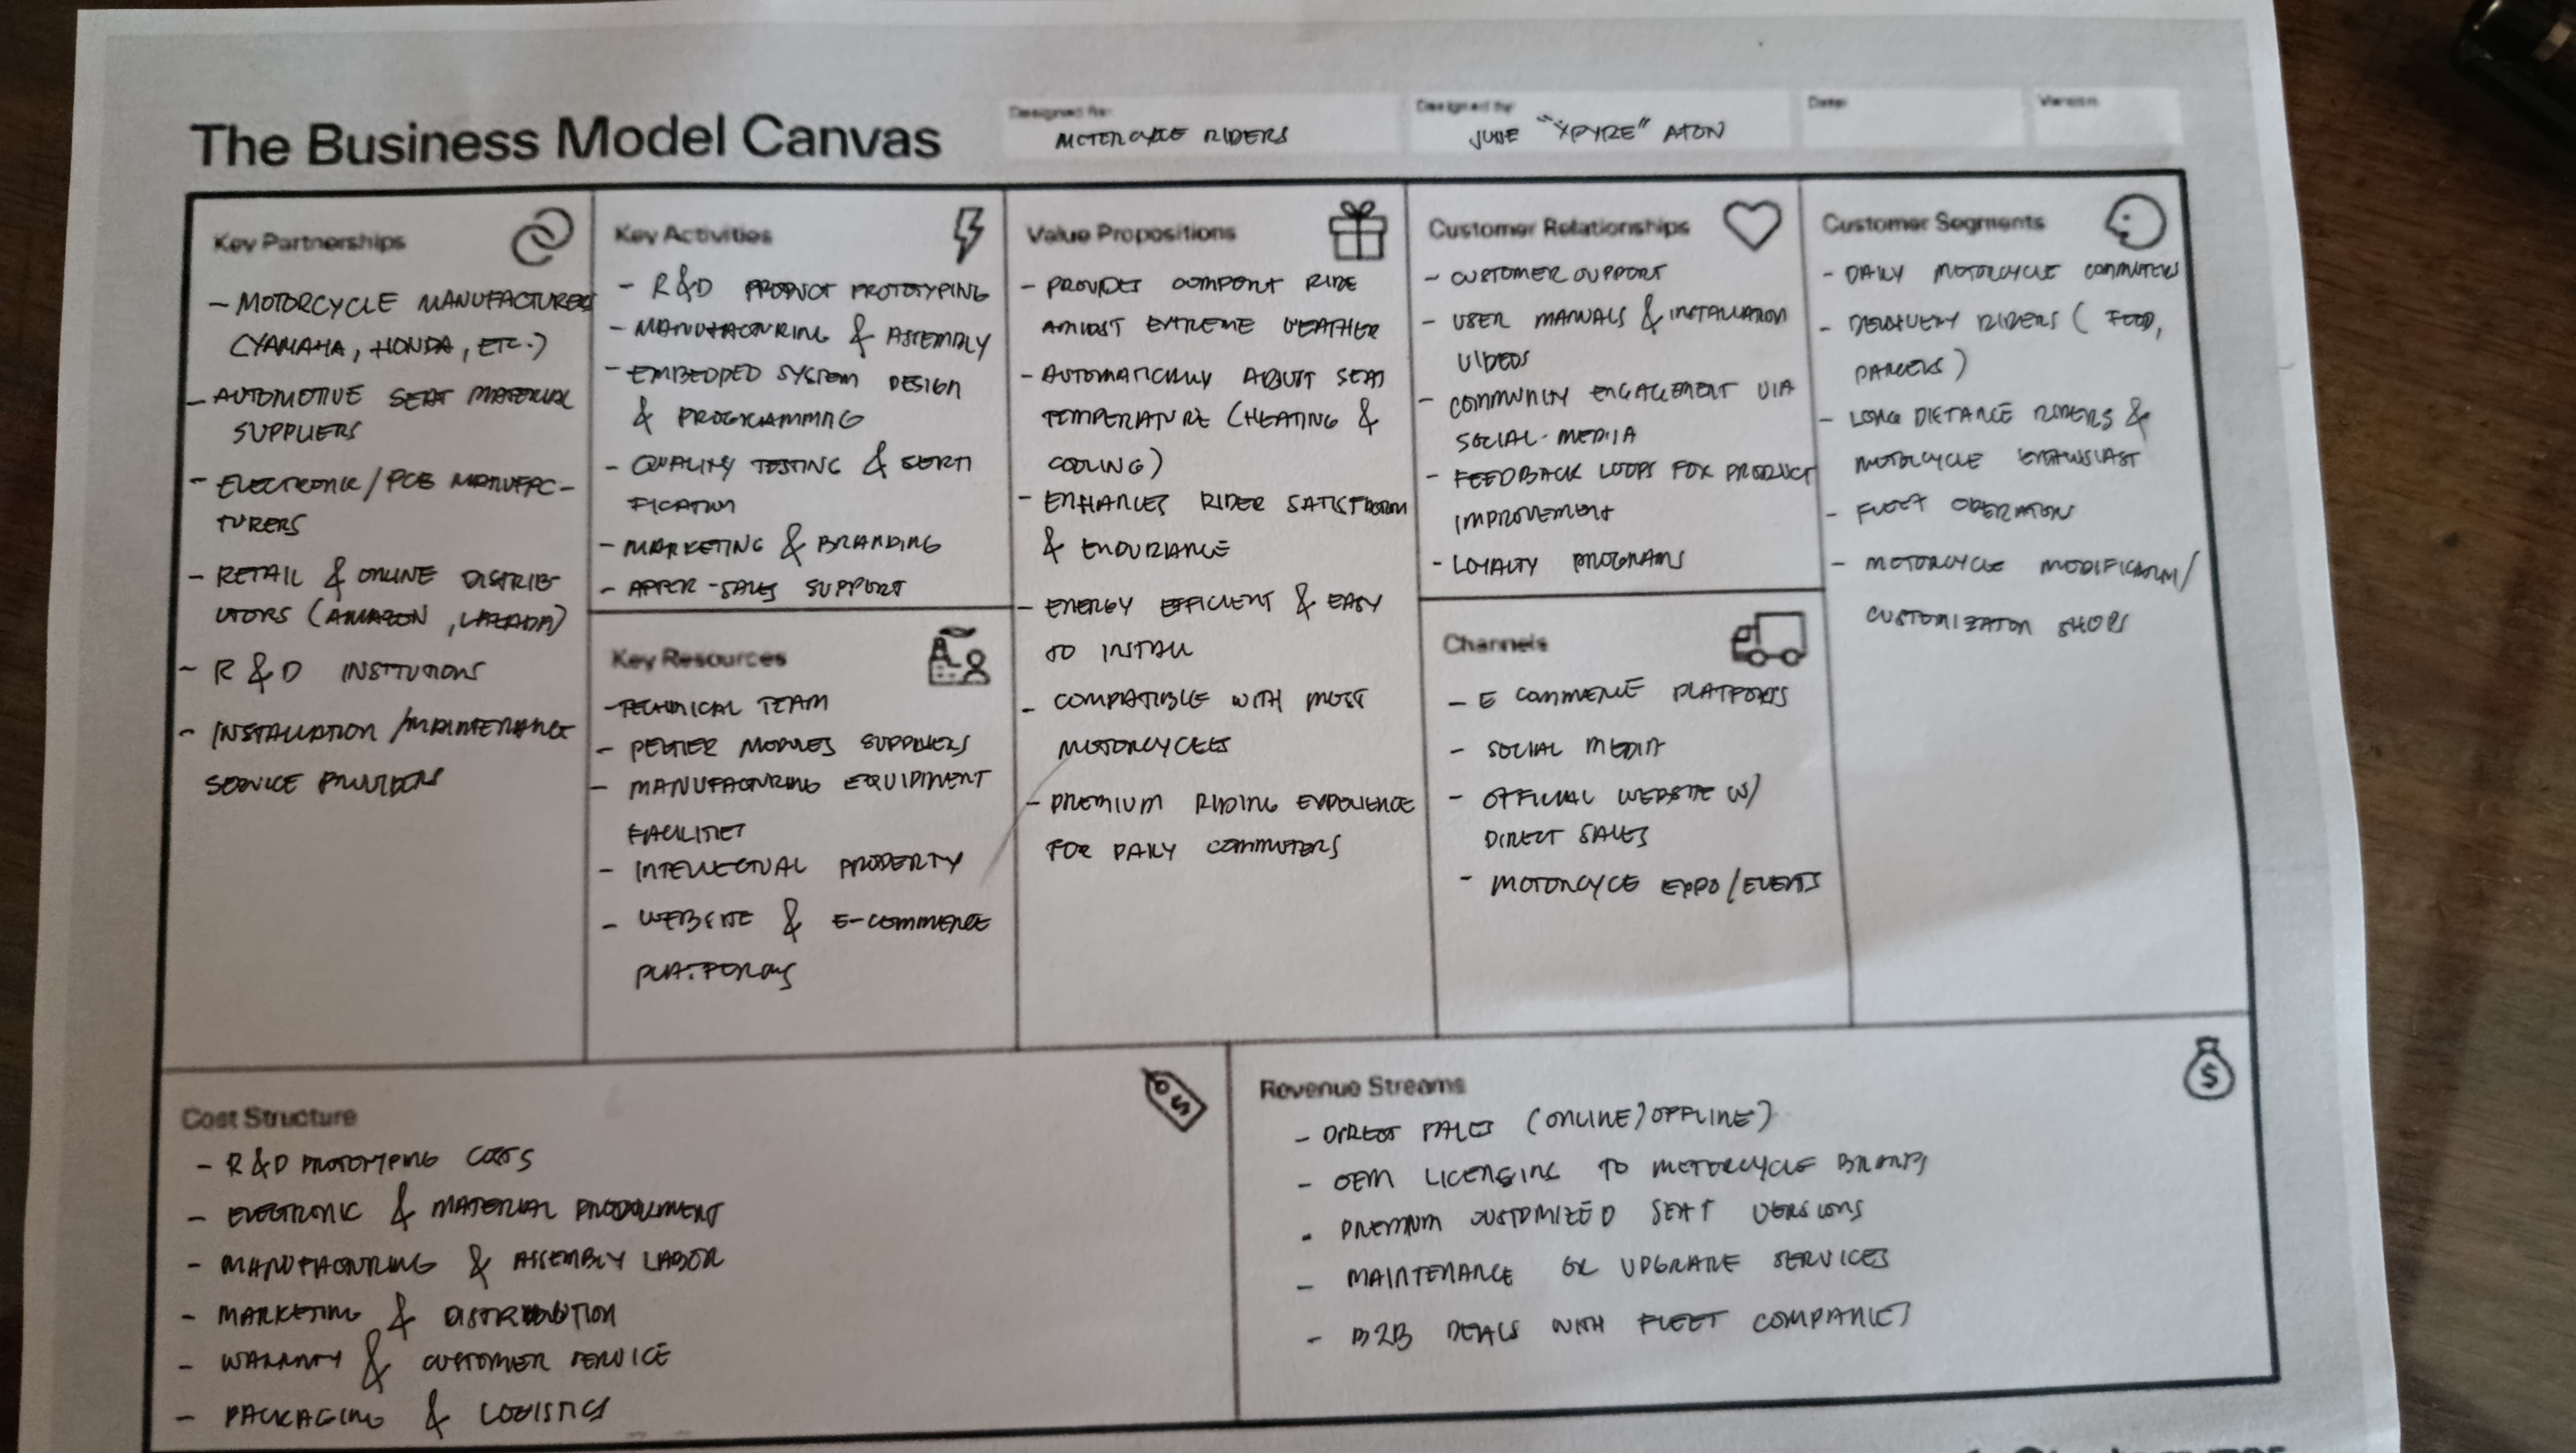 The Business Model Canvas
Designed for:
MOTORCYCLE RIDERS
Designed by:
JUNE "XPYRE" ATON
Date:
Version:
Key Partnerships
- MOTORCYCLE MANUFACTURERS
(YAMAHA, HONDA, ETC.)
- AUTOMOTIVE SEAT MATERIAL
SUPPLIERS
- ELECTRONIC/PCB MANUFAC-
TURERS
- RETAIL & ONLINE DISTRIB-
UTORS (AMAZON, LAZADA)
- R&D INSTITUTIONS
- INSTALLATION/MAINTENANCE
SERVICE PROVIDERS
Key Activities
- R&D PRODUCT PROTOTYPING
- MANUFACTURING & ASSEMBLY
- EMBEDDED SYSTEM DESIGN
& PROGRAMMING
- QUALITY TESTING & SERTI
FICATION
- MARKETING & BRANDING
- AFTER-SALES SUPPORT
Key Resources
- TECHNICAL TEAM
- PELTIER MODULES SUPPLIERS
- MANUFACTURING EQUIPMENT
FACILITIES
- INTELLECTUAL PROPERTY
- WEBSITE & E-COMMERCE
PLATFORMS
Value Propositions
- PROVIDES COMFORT RIDE
AMIDST EXTREME WEATHER
- AUTOMATICALLY ADJUST SEAT
TEMPERATURE (HEATING &
COOLING)
- ENHANCES RIDER SATISFACTION
& ENDURANCE
- ENERGY EFFICIENT & EASY
TO INSTALL
- COMPATIBLE WITH MOST
MOTORCYCLES
- PREMIUM RIDING EXPERIENCE
FOR DAILY COMMUTERS
Customer Relationships
- CUSTOMER SUPPORT
- USER MANUALS & INSTALLATION
VIDEOS
- COMMUNITY ENGAGEMENT VIA
SOCIAL-MEDIA
- FEEDBACK LOOPS FOR PRODUCT
IMPROVEMENT
- LOYALTY PROGRAMS
Channels
- E COMMERCE PLATFORMS
- SOCIAL MEDIA
- OFFICIAL WEBSITE W/
DIRECT SALES
- MOTORCYCLE EXPO/EVENTS
Customer Segments
- DAILY MOTORCYCLE COMMUTERS
- DELIVERY RIDERS (FOOD,
PARCELS)
- LONG DISTANCE RIDERS &
MOTORCYCLE ENTHUSIAST
- FLEET OPERATORS
- MOTORCYCLE MODIFICATION/
CUSTOMIZATION SHOPS
Cost Structure
- R&D PROTOTYPING COSTS
- ELECTRONIC & MATERIAL PROCUREMENT
- MANUFACTURING & ASSEMBLY LABOR
- MARKETING & DISTRIBUTION
- WARRANTY & CUSTOMER SERVICE
- PACKAGING & LOGISTICS
Revenue Streams
- DIRECT SALES (ONLINE/OFFLINE)
- OEM LICENSING TO MOTORCYCLE BRANDS
- PREMIUM CUSTOMIZED SEAT VERSIONS
- MAINTENANCE OR UPGRADE SERVICES
- B2B DEALS WITH FLEET COMPANIES